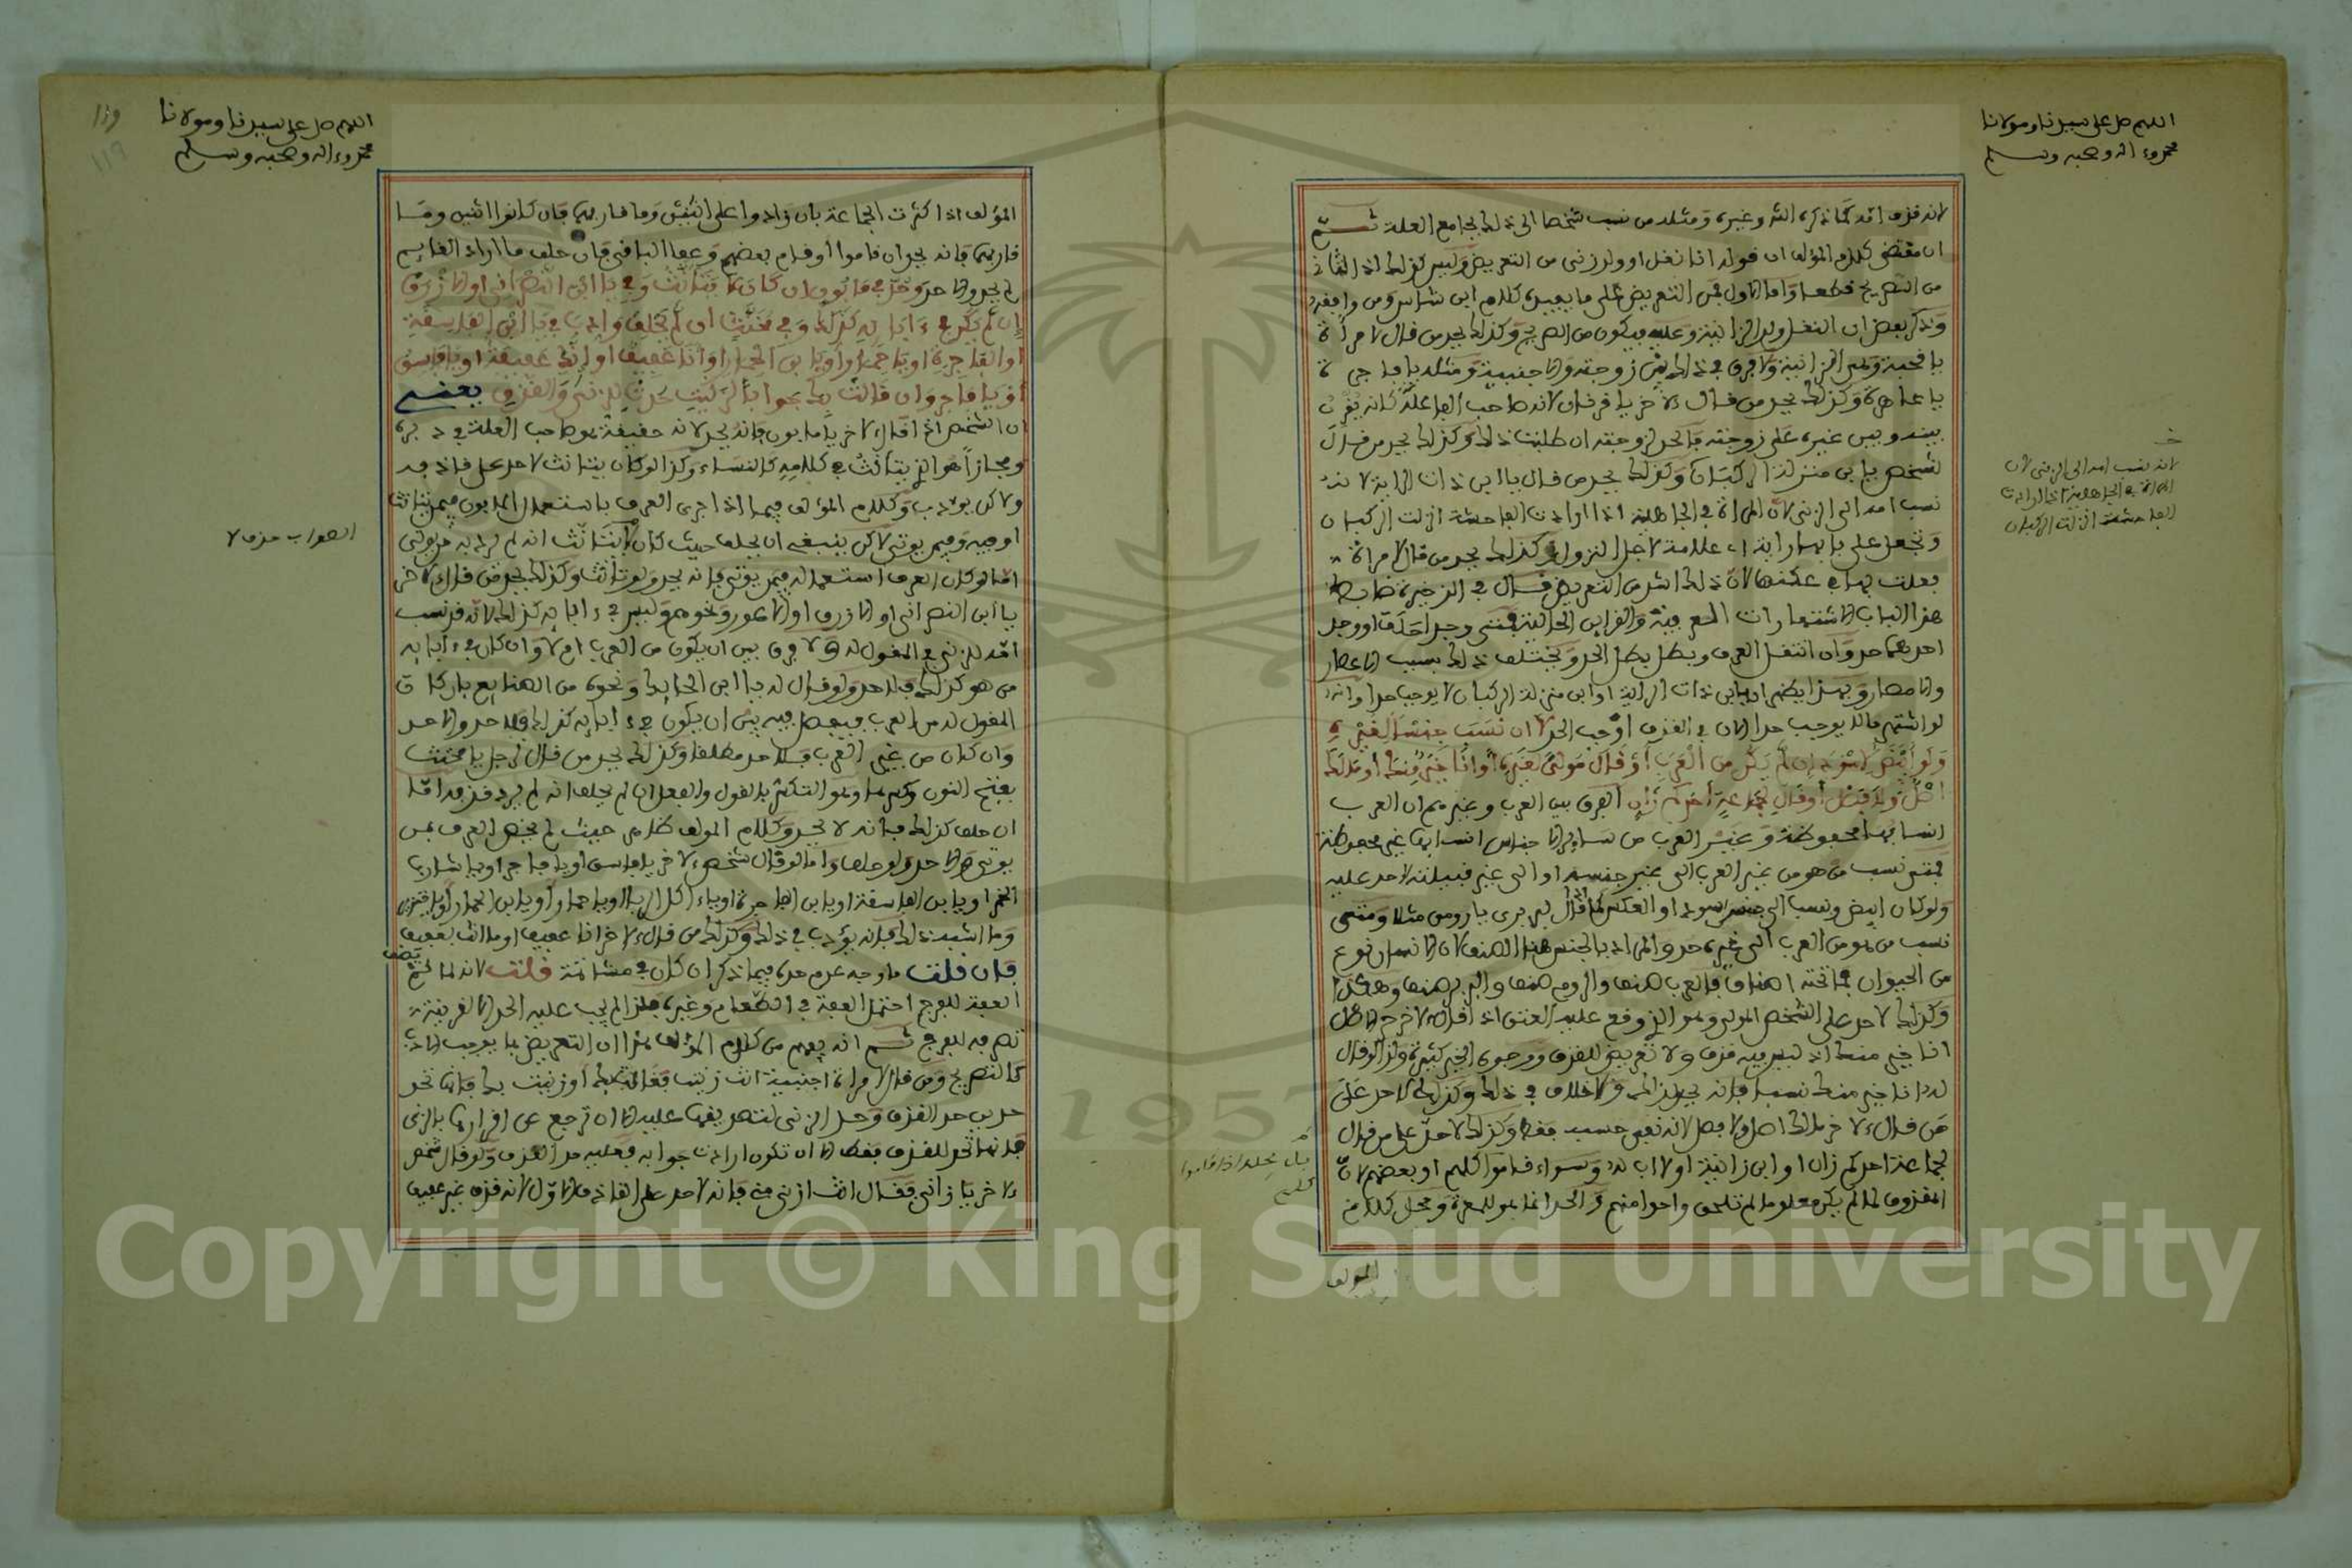 اللهم صل على سيدنا ومولانا
محمد وءاله وصحبه وسلم
لانه قذف امه كما ذكره الش وغيره ومثله من نسب شخصا الى ذلك بجامع العلة ثم
ان مقتضى كلام المؤلف ان قوله انا نغل او ولد زنى من التعريض وليس كذلك اذ الثاني
من التصريح قطعا واما الاول فمن التعريض على ما يفيده كلام ابن شاس ومن وافقه
وذكر بعض ان النغل ولد الزانية وعليه فيكون من الصريح وكذلك يحد من قال لامراة
يا قحبة وهي الزانية ولا فرق في ذلك بين زوجته والاجنبية ومثله يا فاجرة
يا عاهرة وكذلك يحد من قال لآخر يا قرنان لانه صاحب الفاعلة كانه يقرن
بينه وبين غيره على زوجته فالحد لزوجته ان طلبت ذلك وكذلك يحد من قال
لشخص يا ابن منزلة الركبان وكذلك يحد من قال يا ابن ذات الراية لانه
نسب امه الى الزنى لان المراة في الجاهلية اذا ارادت الفاحشة انزلت الركبان
وتجعل على بابها راية اي علامة لاجل النزول وكذلك يحد من قال لامراة
فعلت بها في عكنها لان ذلك اشد من التعريض قال في الذخيرة ضابط
هذا الباب الاشتهارات العرفية والقراين الحالية فمتى وجد احدهما حلف او وجد
احدهما حد وان انتقل العرف وبطل بطل الحد ويختلف ذلك بسبب الاعصار
والامصار وبهذا يظهر ان يا ابن ذات الراية او ابن منزلة الركبان لا يوجب حدا وانه
لو اشتهر ما لا يوجب حدا الآن في القذف اوجب الحد لا ان نسب جنسا لغيره
ولو ابيض لاسود ان لم يكن من العرب او قال مولى لغيره انا خير منك او مالك
اصل ولا فصل او قال لجماعة احدكم زان الفرق بين العرب وغيرهم ان العرب
انسابها محفوظة وغير العرب من ساير الاجناس انسابها غير محفوظة
فمتى نسب من هو من غير العرب الى غير جنسه او الى غير قبيلته لا حد عليه
ولو كان ابيض ونسب الى جنس اسود او العكس كما اذا قال لبربري يا رومي مثلا ومتى
نسب من هو من العرب الى غيره حد والمراد بالجنس هنا الصنف لان الانسان نوع
من الحيوان فما تحته اصناف فالعرب صنف والروم صنف والبربر صنف وهكذا
وكذلك لا حد على الشخص المولى وهو الذي وقع عليه العتق اذا قال لآخر حر الاصل
انا خير منك اذ ليس فيه قذف ولا تعريض للقذف ووجوه الخير كثيرة ولذا لو قال
له انا خير منك نسبا فانه يحد لذلك ولا خلاف في ذلك وكذلك لا حد على
من قال لآخر مالك اصل ولا فصل لانه نفى حسب فقط وكذلك لا حد على من قال
لجماعة احدكم زان او ابن زانية او لا اب له وسواء قاموا كلهم او بعضهم لان
المقذوف لما لم يكن معلوما لم تلحق واحدا منهم والحد انما هو للمعرة ومحل كلام
المؤلف
لانه نسب امه الى الزنى لان
المراة في الجاهلية اذا ارادت
الفاحشة انزلت الركبان
اللهم صل على سيدنا ومولانا
محمد وءاله وصحبه وسلم
١١٩
المؤلف اذا كثرت الجماعة بان زادوا على اثنين وما قاربهما فان كانوا اثنين وما
قاربهما فانه يحد ان قاموا او قام بعضهم وعفا الباقي فان حلف ما اراد القايم
لم يحد والا حد وحد في مابون ان كان لا يتانث وفي يا ابن النصراني او الازرق
ان لم يكن في ءابايه كذلك وفي مخنث ان لم يحلف وادب في يا ابن الفاسقة
او الفاجرة او يا حمار او يا ابن الحمار او انا عفيف او انك عفيفة او يا فاسق
او يا فاجر وان قالت بك جوابا لزنيت حدت للزنى والقذف يعني
ان الشخص اذا قال لآخر يا مابون فانه يحد لانه حقيقة هو صاحب العلة في دبره
ومجازا هو الذي يتانث في كلامه كالنساء وكذا لو كان يتانث لا حد على قاذفه
ولاكن يؤدب وكلام المؤلف فيما اذا جرى العرف باستعمال المابون فيمن يتانث
او فيه وفيمن يوتى لاكن ينبغي ان يحلف حيث كان لا يتانث انه لم يرد به من يوتى
اما لو كان العرف استعماله فيمن يوتى فانه يحد ولو تانث وكذلك يحد من قال لآخر
يا ابن النصراني او الازرق او الاعور ونحوهم وليس في ءابايه كذلك لانه قد نسب
امه للزنى في المقول له ولا فرق بين ان يكون من العرب ام لا وان كان في ءابايه
من هو كذلك فلا حد ولو قال له يا ابن الحايك ونحوه من الصنايع فان كان
المقول له من العرب فيفصل فيه بين ان يكون في ءابايه كذلك فلا حد والا حد
وان كان من غير العرب فلا حد مطلقا وكذلك يحد من قال لرجل يا مخنث
بفتح النون وكسرها وهو التكسر بالقول والفعل ان لم يحلف انه لم يرد قذفه اما
ان حلف كذلك فانه لا يحد وكلام المؤلف ظاهر حيث لم يخص العرف بمن
يوتى والا حد ولو حلف واما لو قال شخص لآخر يا فاسق او يا فاجر او يا شارب
الخمر او يا ابن الفاسقة او يا ابن الفاجرة او يا ءاكل الربا او يا حمار او يا ابن الحمار او يا خنزير
وما اشبه ذلك فانه يؤدب في ذلك وكذلك من قال لآخر انا عفيف او ما انت بعفيف
فان قلت ما وجه عدم حده فيما ذكر ان كان في مشاتمة قلت لانه لما لم يضف
العفة للفرج احتمل العفة في الطعام وغيره فلذا لم يجب عليه الحد الا لقرينة
تصرفه للفرج ثم انه يفهم من كلام المؤلف هذا ان التعريض بما يوجب الادب
كالتصريح ومن قال لامراة اجنبية انت زنيت فقالت بك او زنيت بك فانها تحد
حدين حد القذف وحد الزنى لتصديقها عليه الا ان ترجع عن اقرارها بالزنى
فانها تحد للقذف فقط الا ان تكون ارادت جوابه فعليه حد القذف ولو قال شخص
لآخر يا زاني فقال انت ازنى مني فانه لا حد على القاذف الاول لانه قذف غير عفيف
الصواب حذف لا
بل يحلف اذا قاموا
كلهم
Copyright © King Saud University
1957